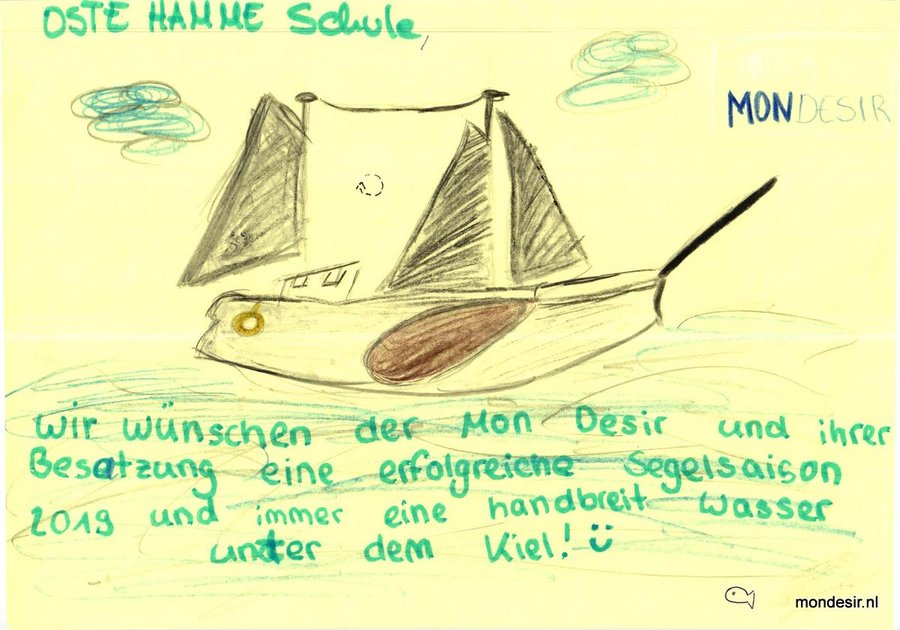 OSTE HAMME Schule
MONDESIR
Wir wünschen der Mon Desir und ihrer
Besatzung eine erfolgreiche Segelsaison
2019 und immer eine handbreit Wasser
unter dem Kiel! Ü
mondesir.nl